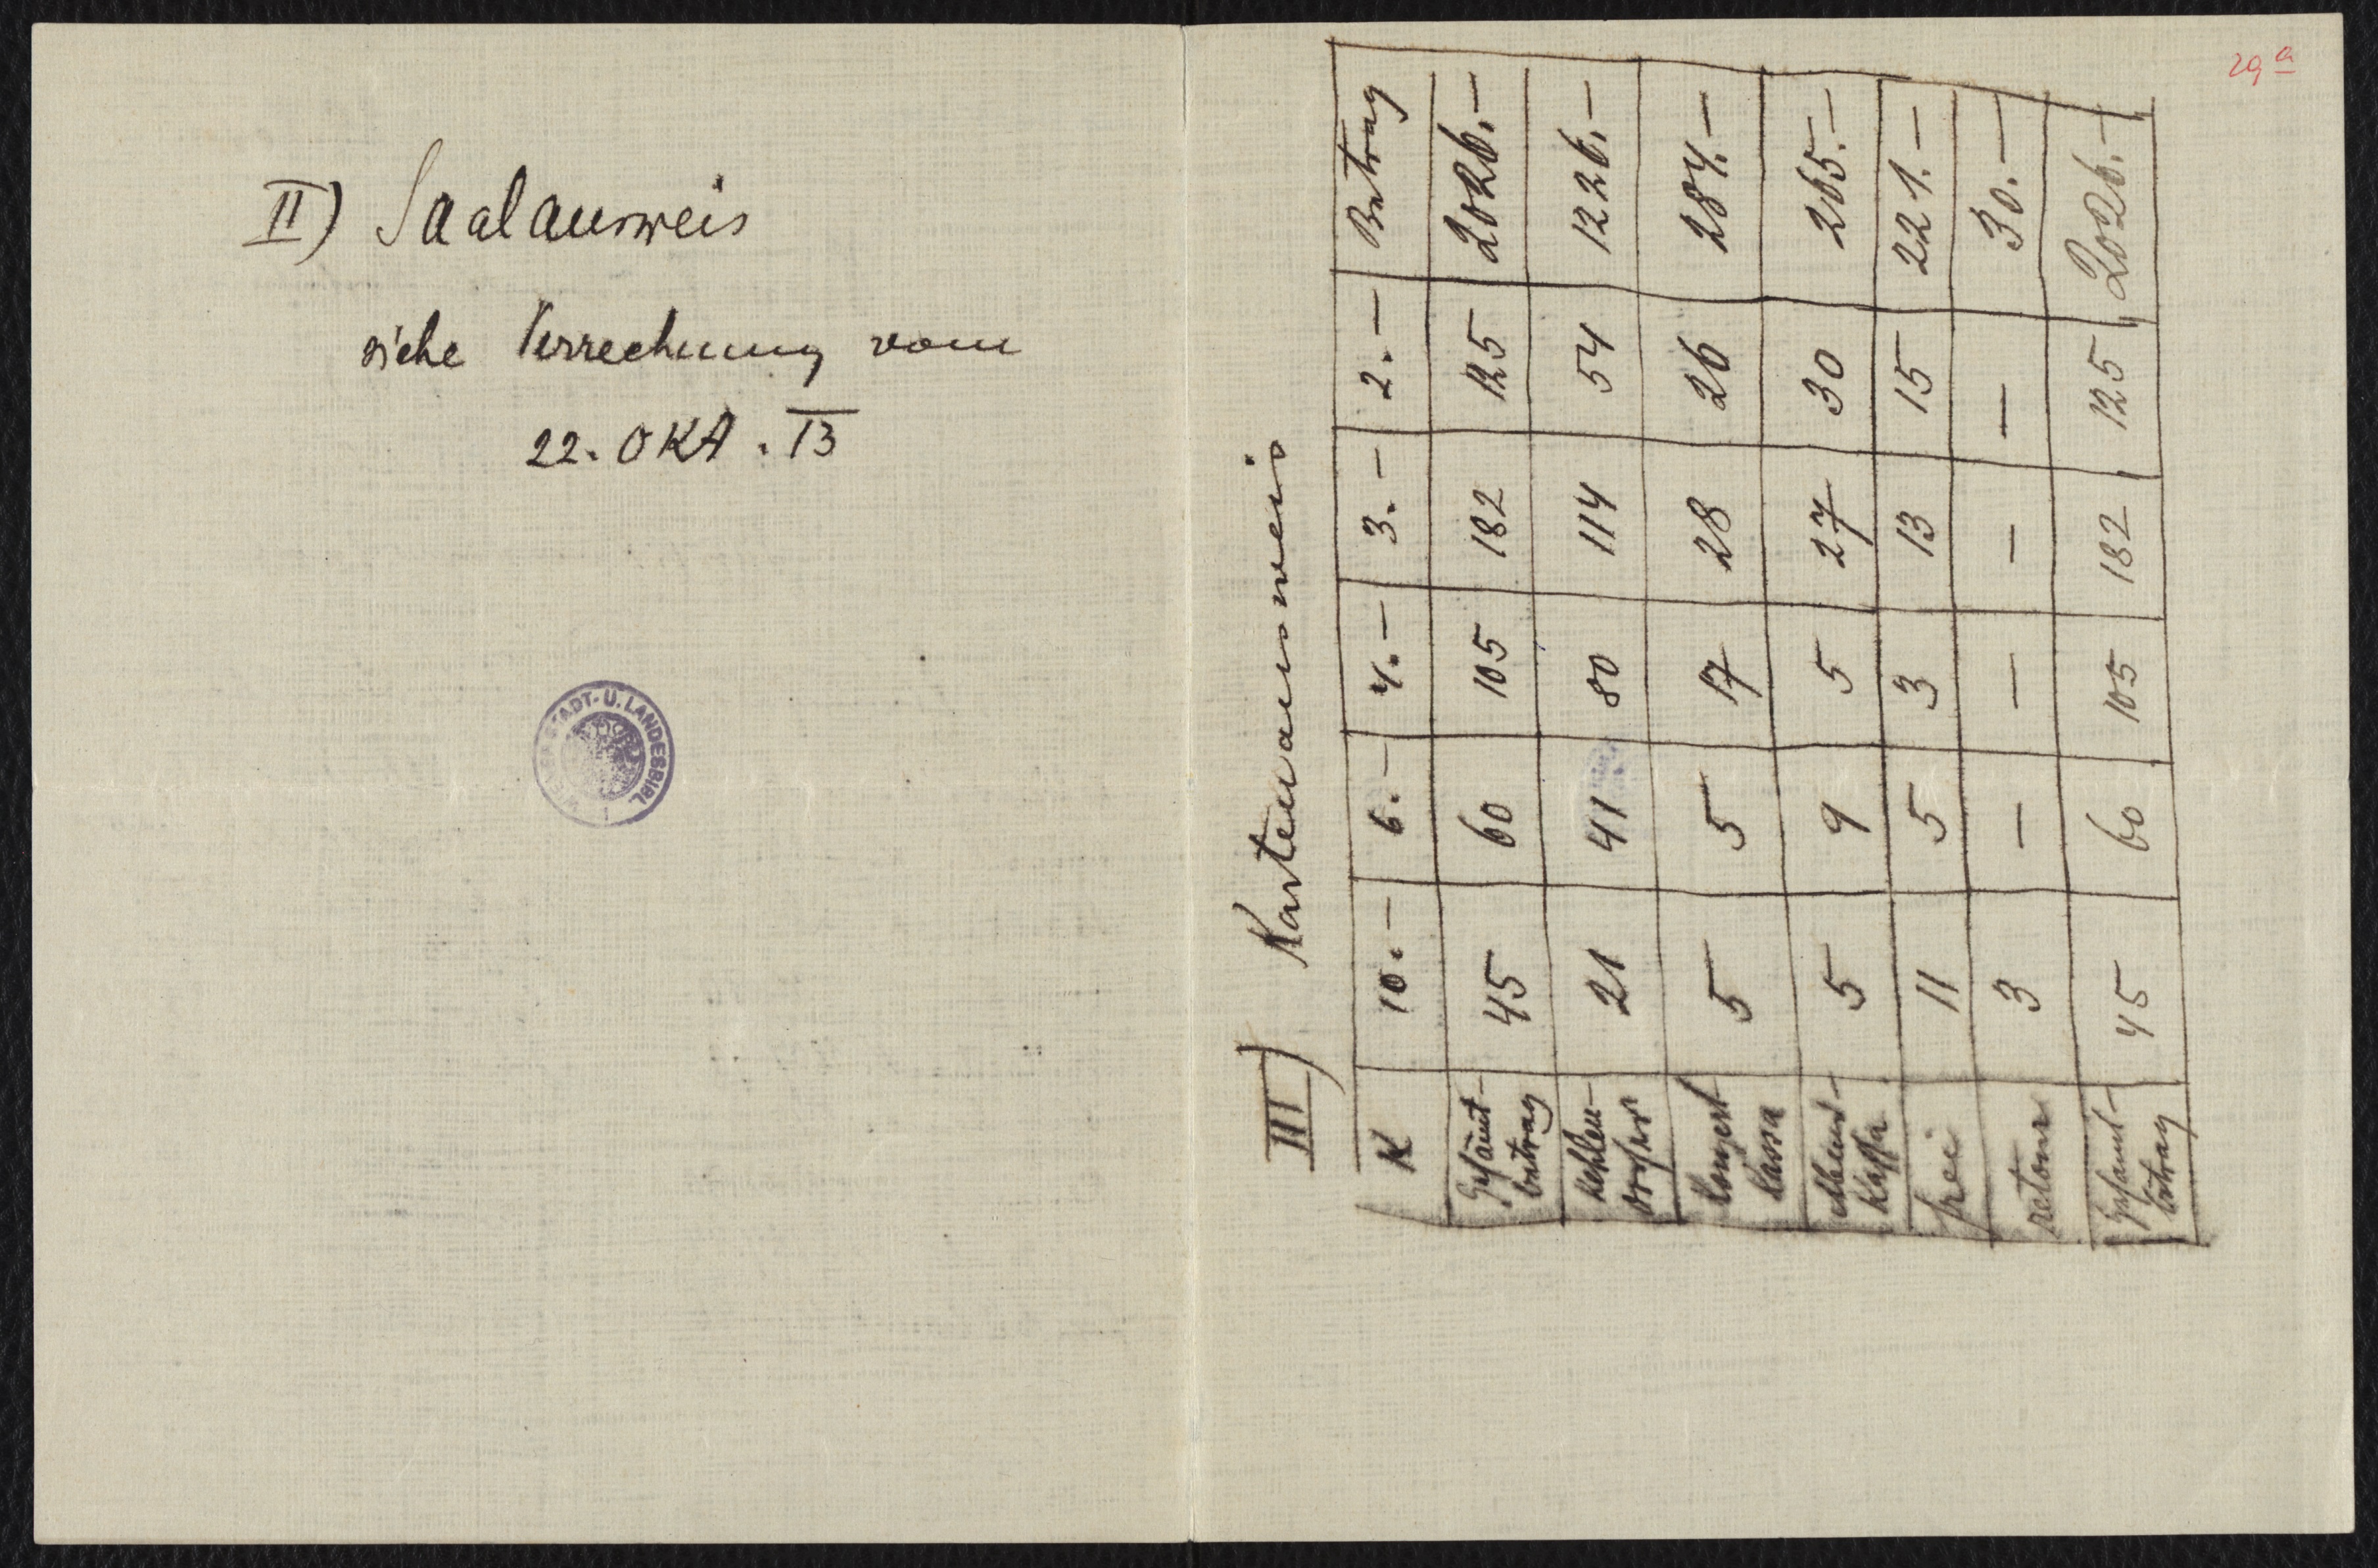 II) Saalausweis
siehe Verrechnung vom
22. OKT. 13
WIENER STADT- U. LANDESBIBL.
29a
III) Kartenausweis
K 10.– 6.– 4.– 3.– 2.– Betrag
Gesamt-
betrag 45 60 105 182 125 2026.–
Kehlen-
dorfer 21 41 80 114 54 1226.–
Konzert
Kassa 5 5 17 28 26 284.–
Abend-
Kassa 5 9 5 27 30 265.–
frei 11 5 3 13 15 221.–
retour 3 – – – – 30.–
Gesamt-
betrag 45 60 105 182 125 2026.–